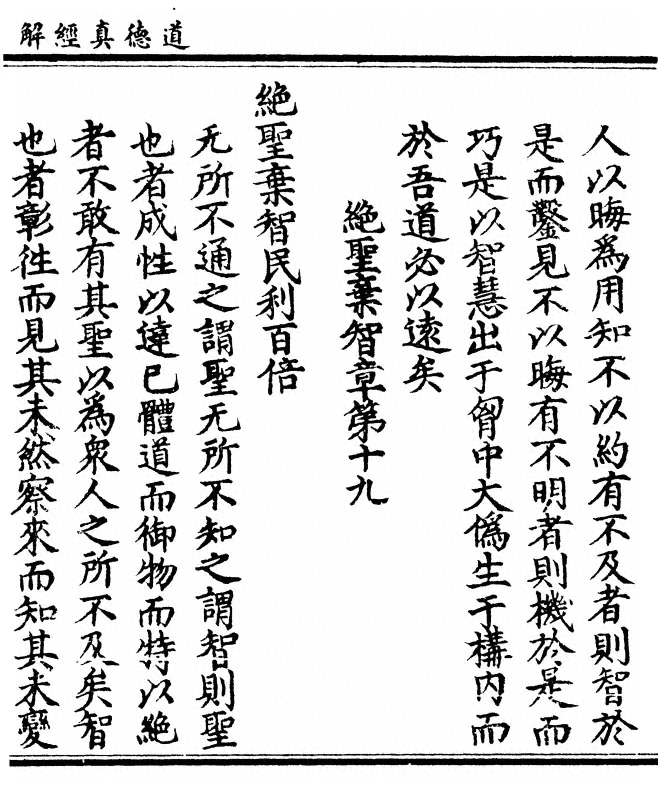 道德真經解
人以晦爲用知不以約有不及者則智於
是而鑿見不以晦有不明者則機於是而
巧是以智慧出于胷中大僞生于構内而
於吾道必以遠矣
絶聖棄智章第十九
絶聖棄智民利百倍
无所不通之謂聖无所不知之謂智則聖
也者成性以達已體道而御物而特以絶
者不敢有其聖以為衆人之所不及矣智
也者彰徃而見其未然察來而知其未變